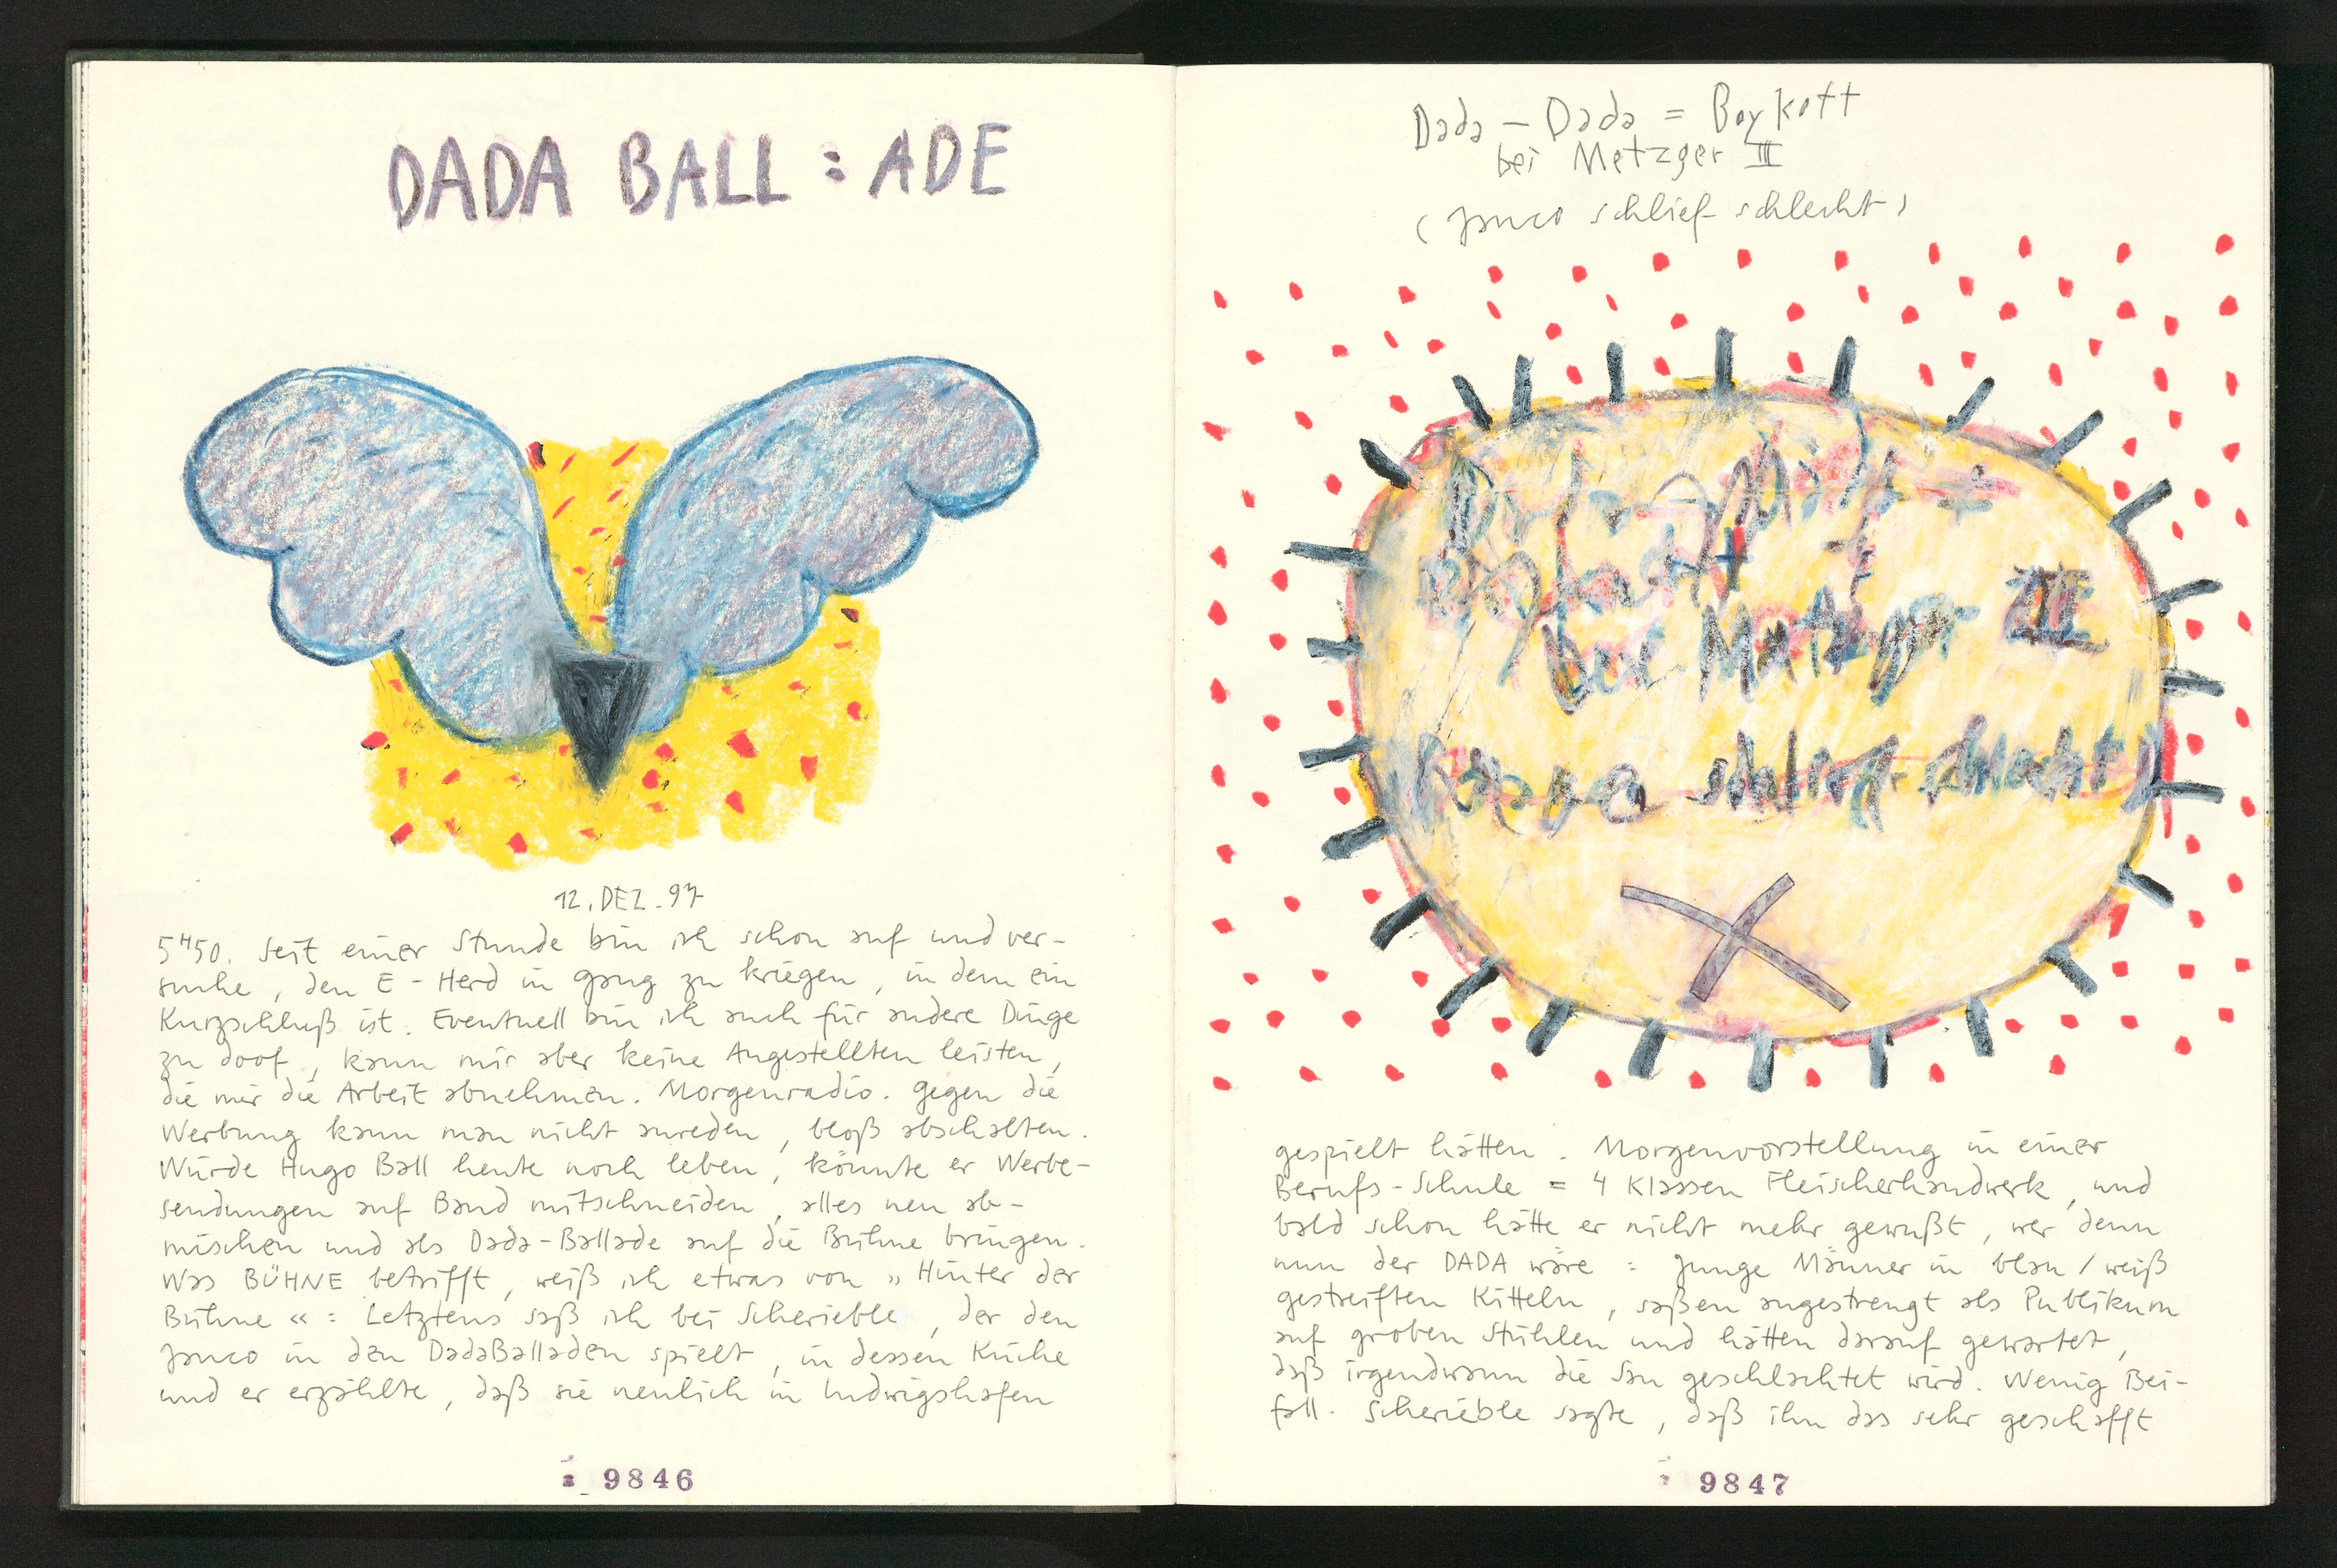 DADA BALL : ADE
12. DEZ. 97
5ᴴ50. Seit einer Stunde bin ich schon auf und ver-
suche, den E-Herd in gang zu kriegen, in dem ein
Kurzschluß ist. Eventuell bin ich auch für andere Dinge
zu doof, kann mir aber keine Angestellten leisten,
die mir die Arbeit abnehmen. Morgenradio. Gegen die
Werbung kann man nicht anreden, bloß abschalten.
Würde Hugo Ball heute noch leben, könnte er Werbe-
sendungen auf Band mitschneiden, alles neu ab-
mischen und als Dada-Ballade auf die Bühne bringen.
Was BÜHNE betrifft, weiß ich etwas von »Hinter der
Bühne«: Letztens saß ich bei Scherieble, der den
Janco in den DadaBalladen spielt, in dessen Küche
und er erzählte, daß sie neulich in Ludwigshafen
9846
Dada - Dada = Boykott
bei Metzger III
(Janco schlief schlecht)
Boykott
bei Metzger III
schlief schlecht)
gespielt hätten. Morgenvorstellung in einer
Berufs-Schule = 4 Klassen Fleischerhandwerk, und
bald schon hätte er nicht mehr gewußt, wer denn
nun der DADA wäre : Junge Männer in blau/weiß
gestreiften Kitteln, saßen angestrengt als Publikum
auf groben Stühlen und hätten darauf gewartet,
daß irgendwann die Sau geschlachtet wird. Wenig Bei-
fall. Scherieble sagte, daß ihn das sehr geschafft
9847